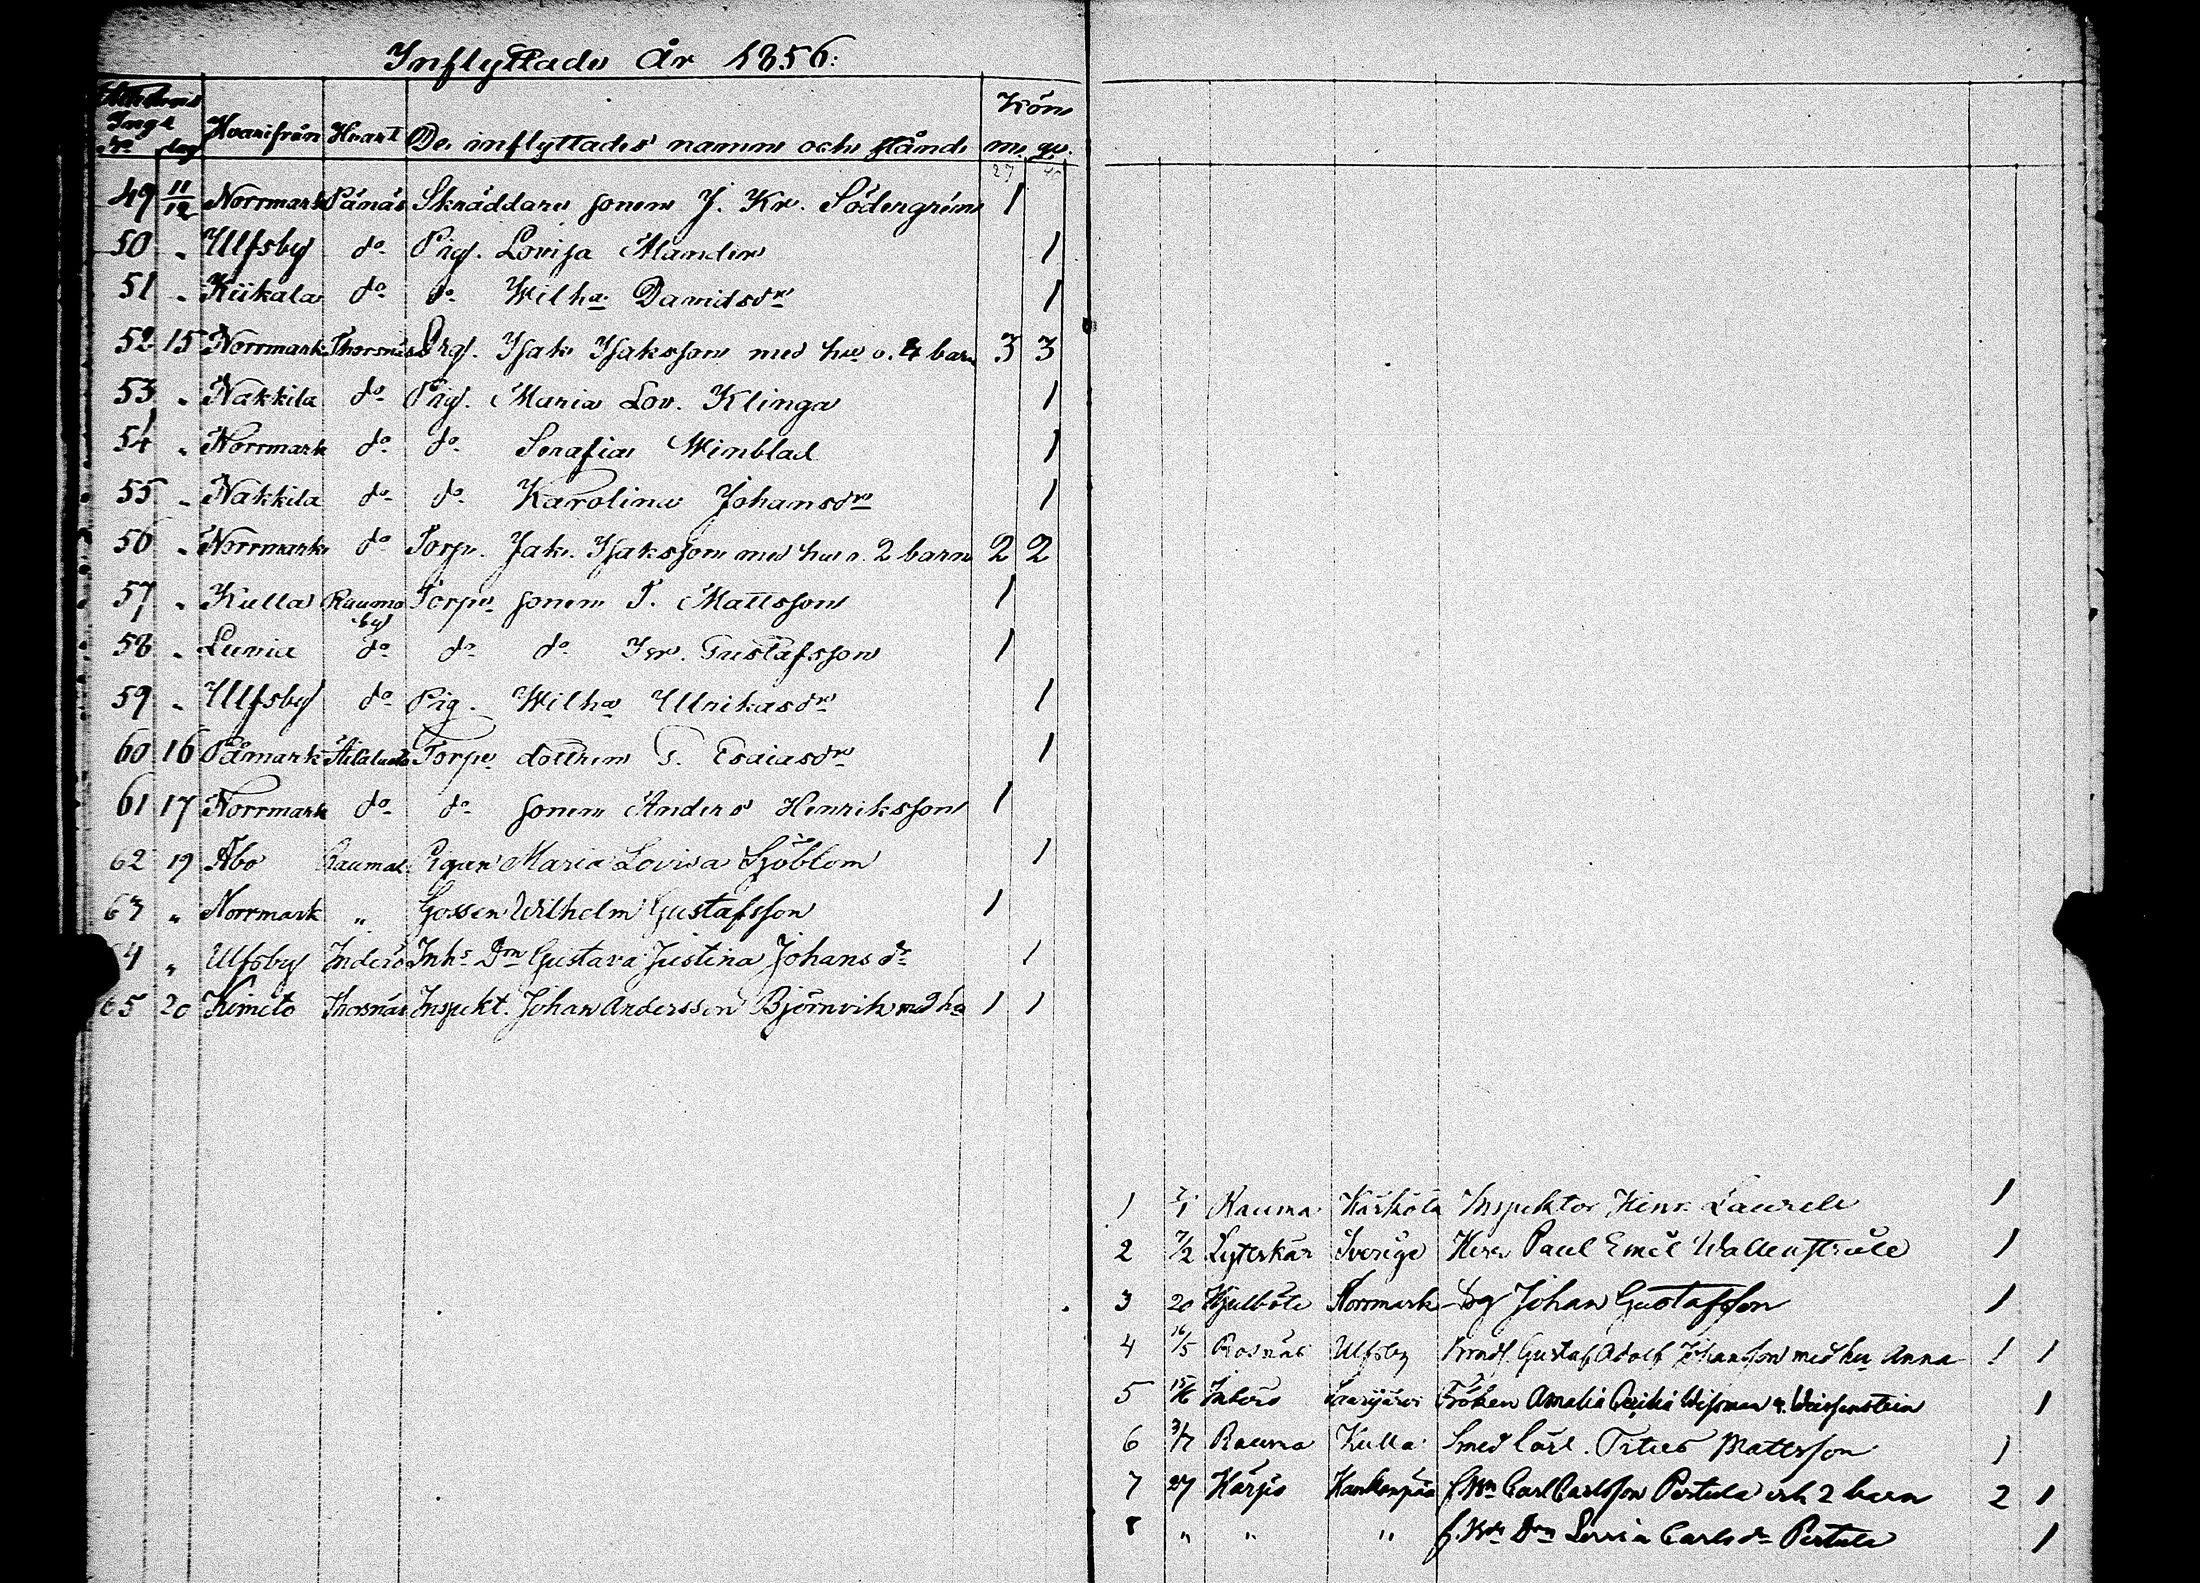 Inflyttade År 1856.
Attestens
Ing:s Hvarifrån Hvart De inflyttades namn och stånd Kön
No dag m. qv.
49 11/12 Norrmark Pånäs Skräddare sonen J. Kr. Södergrén 1
50 " Ulfsby do Pig. Lovisa Mander 1
51 " Kiikala do do Wilha Davidsdr 1
52 15 Norrmark Thorsnäs Drg. Isak Isaksson med hu o. 4 barn 3 3
53 " Nakkila do Pig. Maria Lov. Klinga 1
54 " Norrmark do do Serafia Winblad 1
55 " Nakkila do do Karolina Johansdr 1
56 " Norrmark do Torp. Jak. Isaksson med hu o. 2 barn 2 2
57 " Kulla Raumo by Torp. sonen T. Mattsson 1
58 " Luvia do do do Kr. Gustafsson 1
59 " Ulfsby do Pig. Wilha Ulrikasdr 1
60 16 Påmark Torp. dottren G. Esaiasdr 1
61 17 Norrmark do do sonen Anders Henriksson 1
62 19 Åbo Raumo Pigan Maria Lovisa Sjöblom 1
63 " Norrmark " Gossen Wilhelm Gustafsson 1
64 " Ulfsby Inderö Inhs Drn Gustava Justina Johansdr 1
65 20 Kimito Thorsnäs Inspekt. Johan Andersson Björnvik med hu 1 1
1 7/1 Rauma Kärkölä Inspektor Henr. Laurell 1
2 7/2 Lyterskär Sverige Herr Paul Emil Wallenstråle 1
3 20 Hjulböle Norrmark Drg Johan Gustafsson 1
4 16/5 Rosnäs Ulfsby Gustaf Adolf Johansson med hu Anna 1 1
5 15/6 Inderö Fröken Amalia Cecilia 1
6 3/7 Rauma Kulla Smed lärl. Titus Mattsson 1
7 27 Härpö Kankanpää Carl Carlsson Pertula och 2 barn 2 1
8 " " " Drn Lovisa Carlsdr Pertula 1